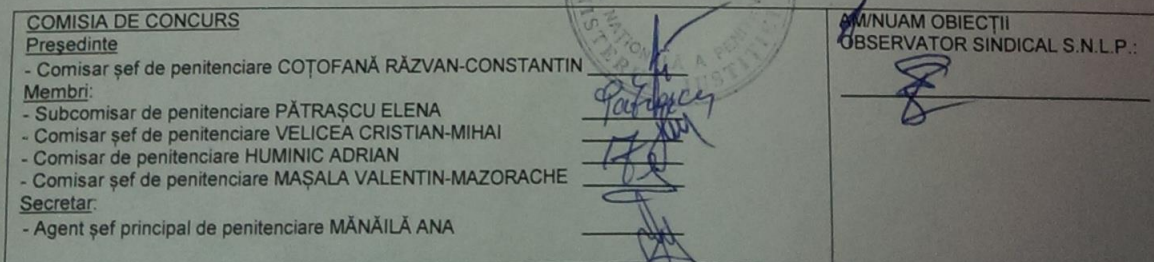 COMISIA DE CONCURS
Președinte
- Comisar șef de penitenciare COȚOFANĂ RĂZVAN-CONSTANTIN
Membri:
- Subcomisar de penitenciare PĂTRAȘCU ELENA
- Comisar șef de penitenciare VELICEA CRISTIAN-MIHAI
- Comisar de penitenciare HUMINIC ADRIAN
- Comisar șef de penitenciare MAȘALA VALENTIN-MAZORACHE
Secretar:
- Agent șef principal de penitenciare MĂNĂILĂ ANA
AM/NUAM OBIECȚII
OBSERVATOR SINDICAL S.N.L.P.: